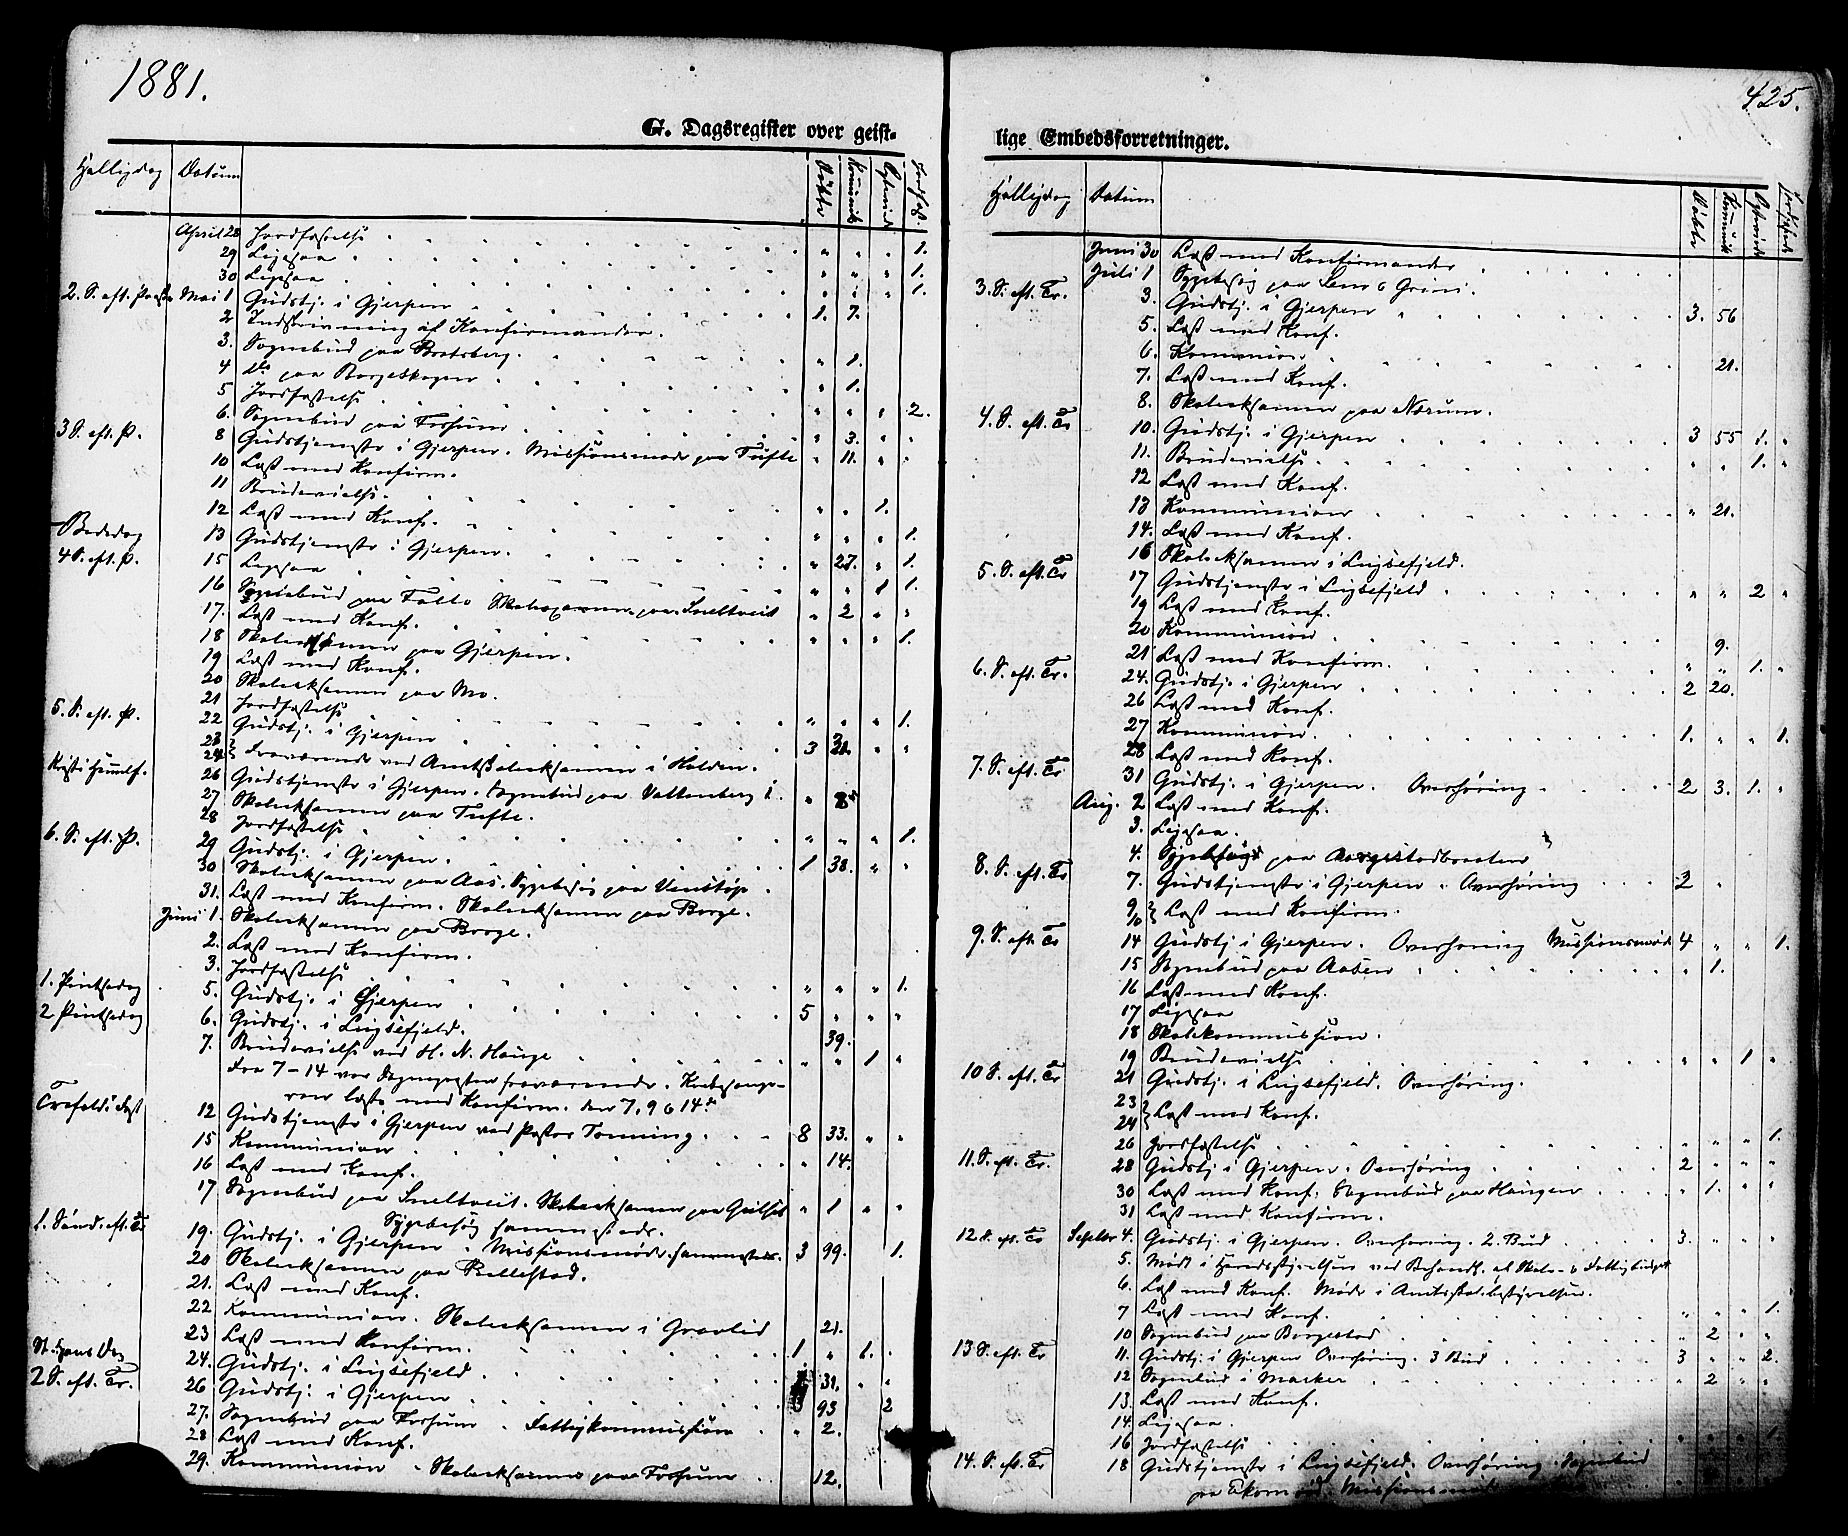 1881.
G. Dagsregister over geist-
Helligdag Datum Døbte Kommunik Ægtevied Jordfæst.
April 28 Jordfæstelse 1.
29 Ligesaa 1.
30 Ligesaa 1.
2. S. eft. Paaske Mai 1 Gudstj. i Gjerpen 1. 7.
2 Indskrivning af Konfirmander.
3. Sognebud paa Bratsberg. 1.
4 do paa Borgeskogen 1.
5 Jordfæstelse 2.
6. Sognebud paa Fossum 3.
3 S. eft. P. 8 Gudstjeneste i Gjerpen. Missionsmøde paa Tufte 11.
10 Læst med Konfirm.
11 Brudevielse. 1.
12 Læst med Konf.
Bededag 13 Gudstjeneste i Gjerpen. 27. 1.
4 S. eft. P. 15 Ligesaa
16 Sognebud paa Follo Skoleexamen paa Sneltveit 2
17. Læst med Konf.
18 Skoleeksamen paa Gjerpen.
19 Læst med Konf.
20 Skoleeksamen paa Mo.
21 Jordfæstelse 1.
5. S. eft. P. 22 Gudstj. i Gjerpen 3
23
24 } Fraværende ved Amtsskoleeksamen i Holden.
Kristi Himmelf. 26 Gudstjeneste i Gjerpen. Sognebud paa Vattenberg 8
27 Skoleeksamen paa Tufte.
28 Jordfæstelse 1.
6. S. eft. P. 29 Gudstj. i Gjerpen. 1 38.
30 Skoleeksamen paa Aas. Sygebesøg paa Venstøp
31. Læst med Konfirm. Skoleeksamen paa Borge.
Juni 1. Skoleeksamen paa Borge.
2. Læst med Konfirm.
3. Jordfæstelse 1.
1. Pintsedag 5. Gudstj. i Gjerpen 5
2 Pintsedag 6. Gudstj. i Luksefjeld. 39.
7. Brudevielse ved H. N. Hauge 1
Fra 7-14 var Sognepresten fraværende.
læste med Konfirm. den 7, 9 & 14de
Trefoldi. Fest 12 Gudstjeneste i Gjerpen ved Pastor Tonning. 8 33.
15 Kommunion 14.
16 Læst med Konf.
17 Sognebud paa Sneltveit. Skoleeksamen paa 1
Sygebesøg sammesteds.
1. Sønd. eft. Tr 19. Gudstj. i Gjerpen. Missionsmøde sammesteds. 3 99. 1.
20 Skoleeksamen paa Rellestad.
21. Læst med Konf.
22 Kommunion. Skoleeksamen i Gravlid 21.
23 Læst med Konfirm.
St. Hans Dag 24. Gudstj. i Luksefjeld 1 1.
2 S. eft. Tr. 26 Gudstj. i Gjerpen 93 2
27. Sognebud paa Fossum. Fattigkommission 2.
28 Læst med Konf.
29. Kommunion. Skoleeksamen paa Fossum 12.
425.
lige Embedsforretninger.
Helligdag Datum Døbte Kommunik Ægtevied Jordfæst
Juni 30 Læst med Konfirmander
Juli 1 Sygebesøg paa Lem & Grini.
3. S. eft. Tr. 3. Gudstj. i Gjerpen 3. 56
5. Læst med Konf.
6. Kommunion. 21.
7. Læst med Konf.
8. Skoleeksamen paa Nærum.
4. S. eft. Tr 10. Gudstj. i Gjerpen 3 55 1.
11. Brudevielse. 1.
12 Læst med Konf.
13 Kommunion 21.
14. Læst med Konf.
16 Skoleeksamen i Luksefjeld.
5. S. eft. Tr 17 Gudstjeneste i Luksefjeld 2
19 Læst med Konf.
20 Kommunion 9.
21 Læst med Konfirm. 1.
6. S. eft. Tr. 24. Gudstj. i Gjerpen 2 20.
26 Læst med Konf.
27 Kommunion. 1. 1.
28 Læst med Konf.
7. S. eft. Tr 31 Gudstj. i Gjerpen. Overhøring 2 3. 1.
Aug. 2 Læst med Konf.
3. Ligesaa.
4. Sygebesøg paa Aargestadbraaten
8. S. eft. Tr 7. Gudstjeneste i Gjerpen. Overhøring 2
9
10 } Læst med Konfirm.
9. S. eft. Tr 14 Gudstj i Gjerpen. Overhøring Missionsmøde 4 1.
15 Sognebud paa Aasen 1.
16 Læst med Konf.
17 Ligesaa
18 Skolekommission.
19 Brudevielse 1
10 S. eft. Tr 21 Gudstj. i Luksefjeld. Overhøring.
23
24 } Læst med Konf.
26 Jordfæstelse 1.
11. S. eft. Tr. 28 Gudstj i Gjerpen. Overhøring 2
30 Læst med Konf. Sognebud paa Haugen 1.
31 Læst med Konfirm.
12 S. eft. Tr Septbr 4. Gudstj. i Gjerpen. Overhøring. 2. Bud 3.
5. Møde i Herredsstyrelsen ved Behandl. af Skole- & Fattigbudget
6. Læst med Konf. Møde i
7 Læst med Konf. 1.
10 Sognebud paa Borgestad 2
13 S. eft. Tr 11. Gudstj. i Gjerpen Overhøring. 3 Bud 3 2.
12 Sognebud i Marker 2
13. Læst med Konf.
14. Ligesaa.
16 Jordfæstelse 1
14. S. eft. Tr 18 Gudstjeneste i Luksefjeld. Overhøring. Sognebud
paa Missionsmøde